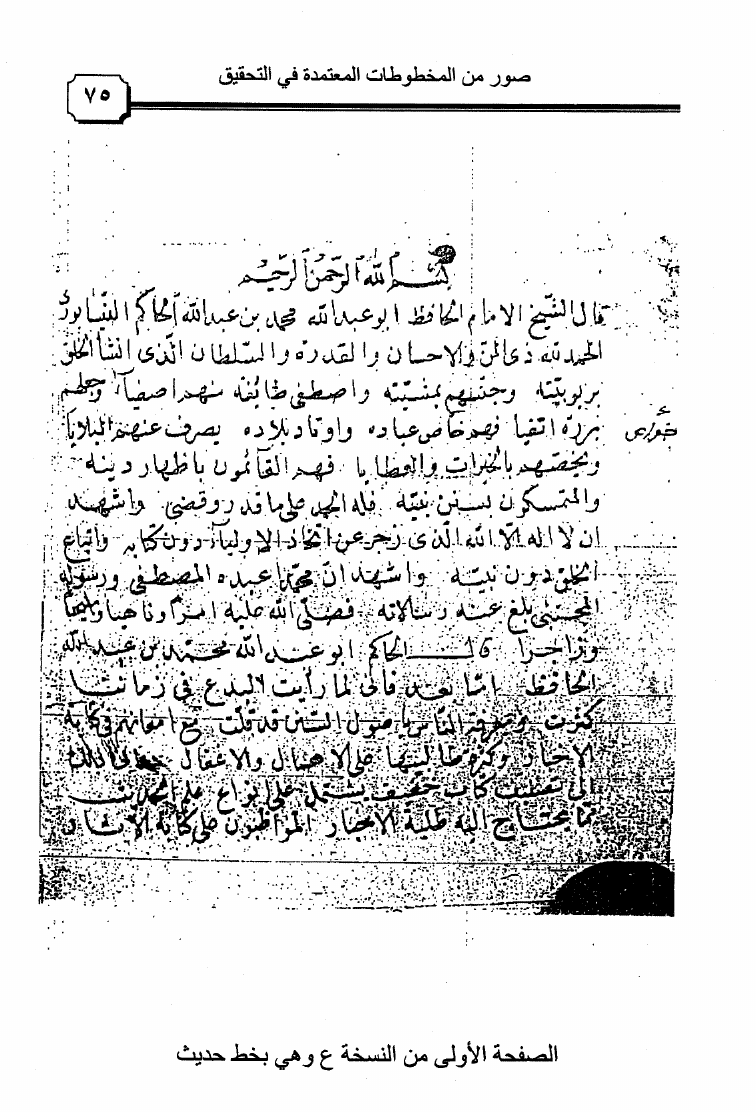 صور من المخطوطات المعتمدة في التحقيق
٧٥
بسم الله الرحمن الرحيم
قال الشيخ الامام الحافظ ابو عبدالله محمد بن عبدالله الحاكم النيسابوري
الحمد لله ذي المن والاحسان والقدره والسلطان الذي انشأ الخلق
بربوبيته وجنسهم بمشيته واصطفى طائفه منهم اصفياء وجعلهم
بررة اتقيا فهم خاص عباده واوتاد بلاده يصرف عنهم البلايا
خواص
ويخصهم بالخيرات والعطايا فهم القائمون باظهار دينه
والمتمسكون بسنن نبيه فله الحمد على ما قدر وقضى واشهد
ان لا اله الا الله الذي زجر عن اتخاذ الاولياء دون كتابه واتباع
الخلق دون نبيه واشهد ان محمدا عبده المصطفى ورسوله
المجتبى بلغ عنه رسالاته فصلى الله عليه امرا وناهيا ومبيحا
وزاجرا قال الحاكم ابو عبد الله محمد بن عبد الله
الحافظ اما بعد فاني لما رأيت البدع في زماننا
كثرت ومعرفة الناس باصول السنن قد قلت مع امعانهم في كتابة
الاخبار وكثرة طالبيها على الاهمال والاغفال دعاني ذلك
الى تصنيف كتاب خفيف يشتمل على انواع علم الحديث
مما يحتاج اليه طلبة الاخبار المواظبون على كتابة الاثار
الصفحة الأولى من النسخة ع وهي بخط حديث